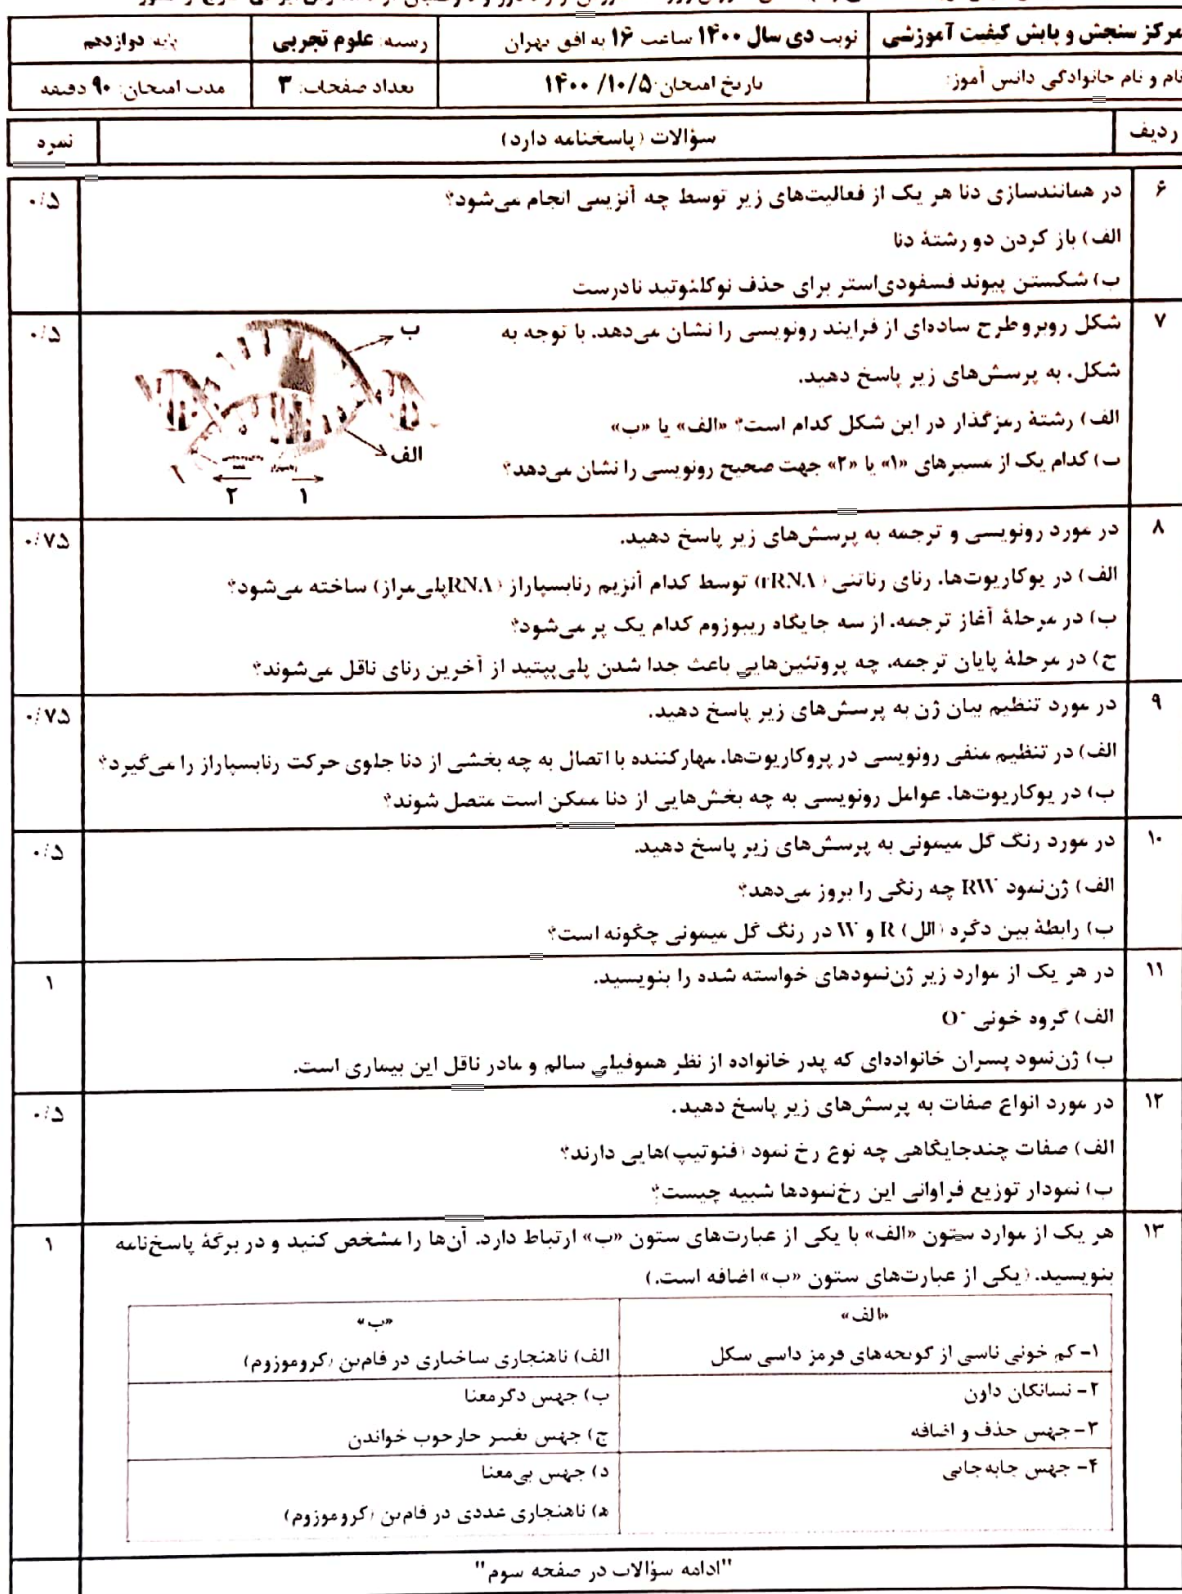 مرکز سنجش و پایش کیفیت آموزشی
نوبت دی سال ۱۴۰۰ ساعت ۱۶ به افق تهران
رشته: علوم تجربی
پایه دوازدهم
نام و نام خانوادگی دانش آموز:
تاریخ امتحان: ۱۴۰۰/۱۰/۵
تعداد صفحات: ۳
مدت امتحان: ۹۰ دقیقه
ردیف
سؤالات (پاسخنامه دارد)
نمره
۶
در همانندسازی دنا هر یک از فعالیت‌های زیر توسط چه آنزیمی انجام می‌شود؟
۰/۵
الف) باز کردن دو رشتهٔ دنا
ب) شکستن پیوند فسفودی‌استر برای حذف نوکلئوتید نادرست
۷
شکل روبرو طرح ساده‌ای از فرایند رونویسی را نشان می‌دهد. با توجه به
۰/۵
شکل، به پرسش‌های زیر پاسخ دهید.
الف) رشتهٔ رمزگذار در این شکل کدام است؟ «الف» یا «ب»
ب) کدام یک از مسیرهای «۱» یا «۲» جهت صحیح رونویسی را نشان می‌دهد؟
ب
الف
۲
۱
۸
در مورد رونویسی و ترجمه به پرسش‌های زیر پاسخ دهید.
۰/۷۵
الف) در یوکاریوت‌ها، رنای رناتنی (rRNA) توسط کدام آنزیم رنابسپاراز (RNAپلی‌مراز) ساخته می‌شود؟
ب) در مرحلهٔ آغاز ترجمه، از سه جایگاه ریبوزوم کدام یک پر می‌شود؟
ج) در مرحلهٔ پایان ترجمه، چه پروتئین‌هایی باعث جدا شدن پلی‌پپتید از آخرین رنای ناقل می‌شوند؟
۹
در مورد تنظیم بیان ژن به پرسش‌های زیر پاسخ دهید.
۰/۷۵
الف) در تنظیم منفی رونویسی در پروکاریوت‌ها، مهارکننده با اتصال به چه بخشی از دنا جلوی حرکت رنابسپاراز را می‌گیرد؟
ب) در یوکاریوت‌ها، عوامل رونویسی به چه بخش‌هایی از دنا ممکن است متصل شوند؟
۱۰
در مورد رنگ گل میمونی به پرسش‌های زیر پاسخ دهید.
۰/۵
الف) ژن‌نمود RW چه رنگی را بروز می‌دهد؟
ب) رابطهٔ بین دگره (الل) R و W در رنگ گل میمونی چگونه است؟
۱۱
در هر یک از موارد زیر ژن‌نمودهای خواسته شده را بنویسید.
۱
الف) گروه خونی O⁻
ب) ژن‌نمود پسران خانواده‌ای که پدر خانواده از نظر هموفیلی سالم و مادر ناقل این بیماری است.
۱۲
در مورد انواع صفات به پرسش‌های زیر پاسخ دهید.
۰/۵
الف) صفات چندجایگاهی چه نوع رخ نمود (فنوتیپ)هایی دارند؟
ب) نمودار توزیع فراوانی این رخ‌نمودها شبیه چیست؟
۱۳
هر یک از موارد ستون «الف» با یکی از عبارت‌های ستون «ب» ارتباط دارد. آن‌ها را مشخص کنید و در برگهٔ پاسخ‌نامه
۱
بنویسید. (یکی از عبارت‌های ستون «ب» اضافه است.)
«الف»
«ب»
۱- کم خونی ناشی از گویچه‌های قرمز داسی شکل
الف) ناهنجاری ساختاری در فام‌تن (کروموزوم)
۲- نشانگان داون
ب) جهش دگرمعنا
۳- جهش حذف و اضافه
ج) جهش تغییر چارچوب خواندن
۴- جهش جابه‌جایی
د) جهش بی‌معنا
ه) ناهنجاری عددی در فام‌تن (کروموزوم)
"ادامه سؤالات در صفحه سوم"